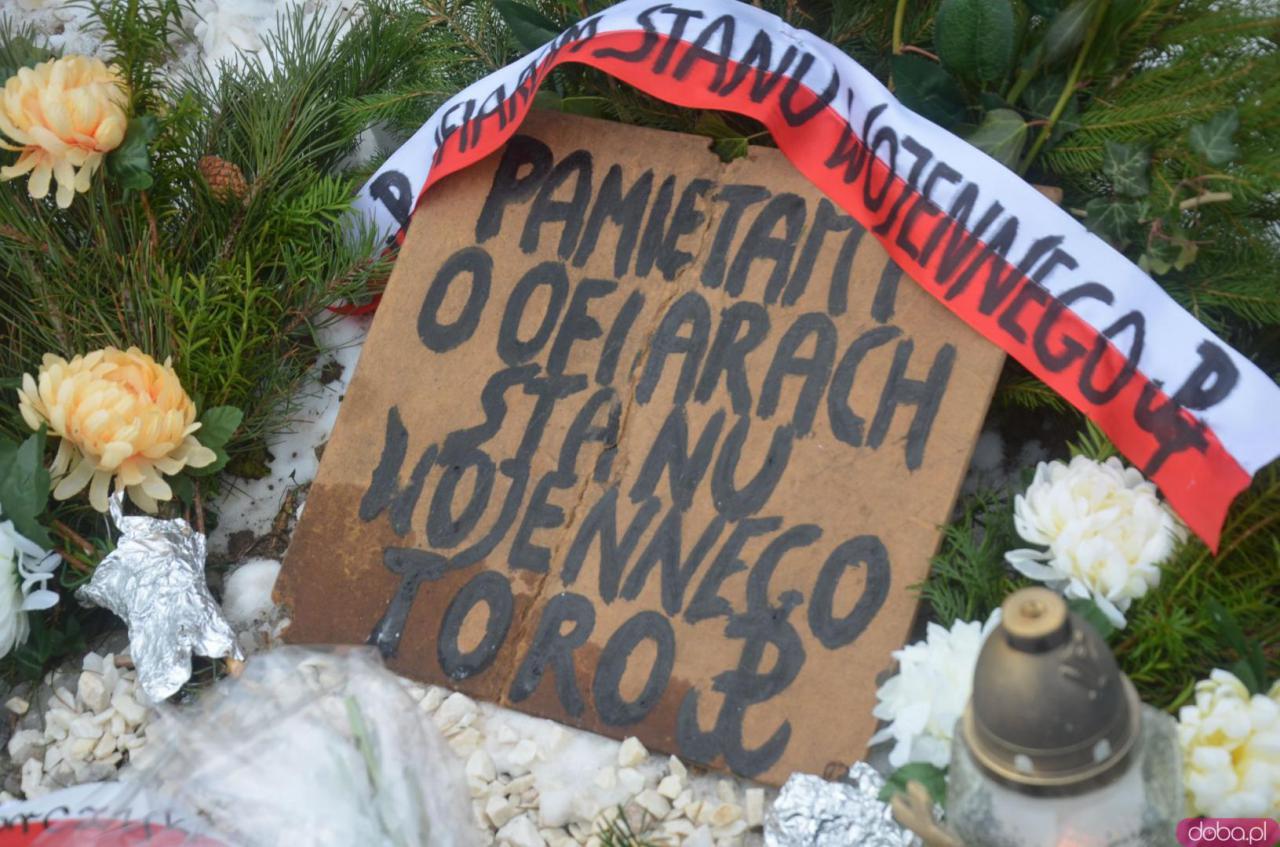 OFIAROM STANU WOJENNEGO
PAMIĘTAMY
O OFIARACH
STANU
WOJENNEGO
TORO
doba.pl